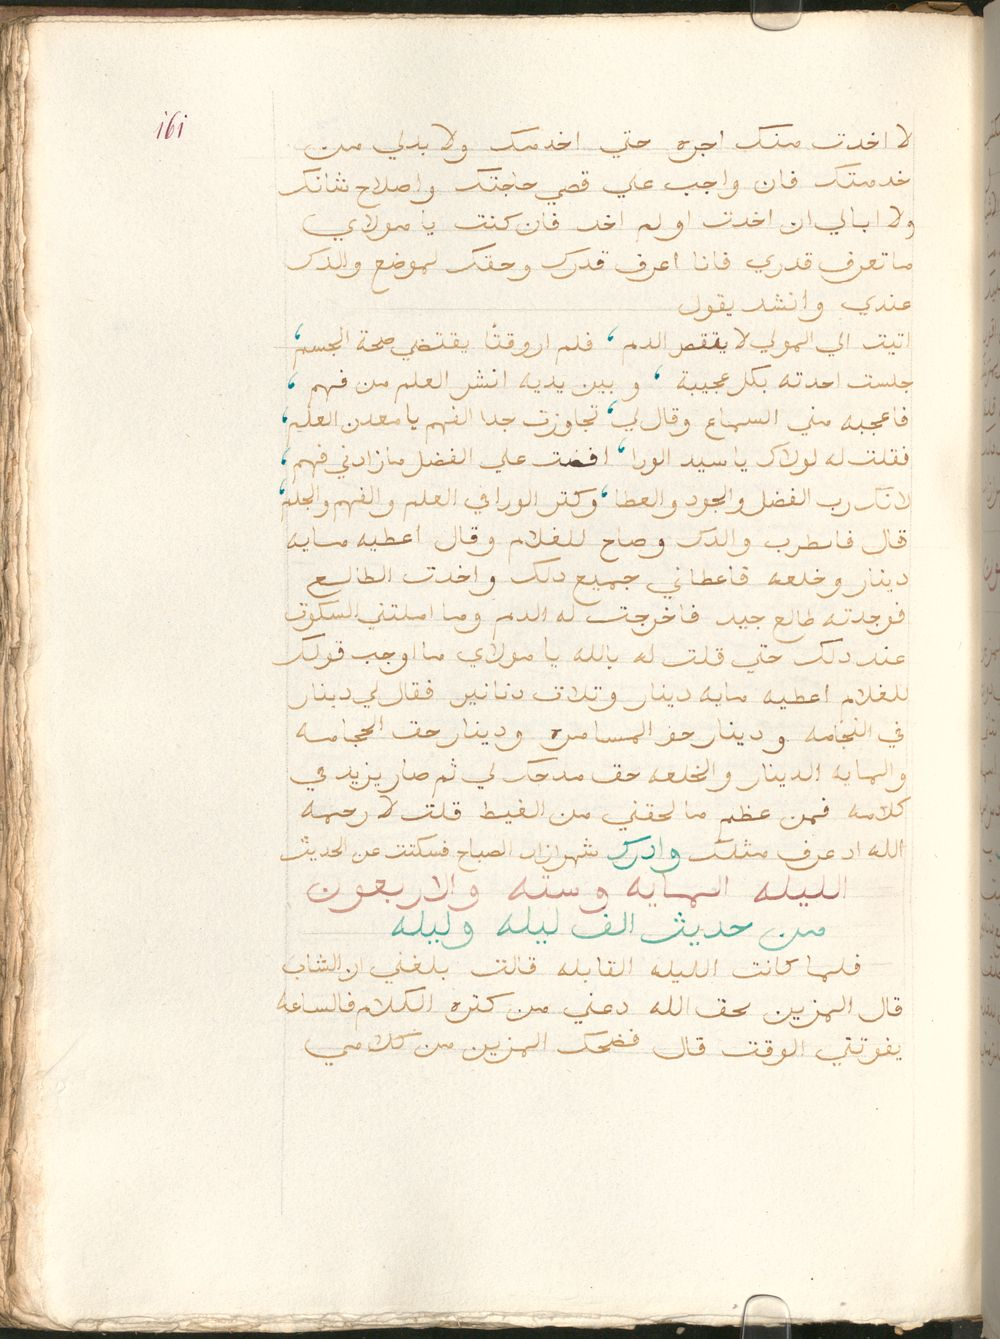 161
لا اخدت منك اجره حتي اخدمك ولا بدلي من
خدمتك فان واجب علي قضي حاجتك واصلاح شانك
ولا ابالي ان اخدت او لم اخد فان كنت يا مولاي
ما تعرف قدري فانا اعرف قدرك وحقك لموضع والدك
عندي وانشد يقول
اتيت الي المولي لا ينقص الدم ، فلم ار وقتًا يقتضي صحة الجسم ،
جلست احدته بكل عجيبة ، و بين يديه انشر العلم من فهم ،
فاعجبه مني السماع وقال لي ، تجاوزت جدا الفهم يا معدن العلم ،
فقلت له لولاك يا سيد الورا ، افضت علي الفضل ما زادني فهم ،
لانك رب الفضل والجود والعطا ، وكنز الورا في العلم والفهم والحلم ،
قال فاطرب والدك وصاح للغلام وقال اعطيه مايه
دينار وخلعه فاعطاني جميع دلك واخدت الطالع
فوجدته طالع جيد فاخرجت له الدم وما املتني السكوت
عند دلك حتي قلت له بالله يا مولاي ما اوجب قولك
للغلام اعطيه مايه دينار وتلات دنانير فقال لي دينار
في النجامه ودينار حق المسامره ودينار حق الحجامه
والمايه الدينار والخلعه حق مدحك لي ثم صار يزيد في
كلامه فمن عظم ما لحقني من الغيظ قلت لا رحمه
الله اد عرف مثلك وادرك شهرازاد الصباح فسكتت عن الحديث
الليله المايه وسته والاربعون
من حديث الف ليله وليله
فلما كانت الليله القابله قالت بلغني ان الشاب
قال المزين بحق الله دعني من كثره الكلام فالساعه
يفوتني الوقت قال فضحك المزين من كلامي